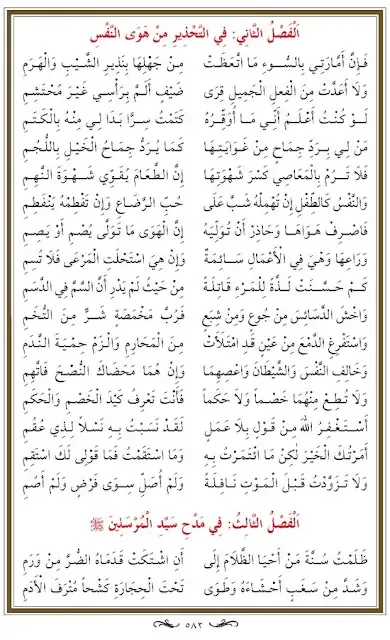 اَلْفَصْلُ الثَّانِي: فِي التَّحْذِيرِ مِنْ هَوَى النَّفْسِ
فَإِنَّ أَمَّارَتِي بِالسُّوءِ مَا اتَّعَظَتْ مِنْ جَهْلِهَا بِنَذِيرِ الشَّيْبِ وَالْهَرَمِ
وَلَا أَعَدَّتْ مِنَ الْفِعْلِ الْجَمِيلِ قِرَى ضَيْفٍ أَلَمَّ بِرَأْسِي غَيْرَ مُحْتَشِمِ
لَوْ كُنْتُ أَعْلَمُ أَنِّي مَا أُوَقِّرُهُ كَتَمْتُ سِرًّا بَدَا لِي مِنْهُ بِالْكَتَمِ
مَنْ لِي بِرَدِّ جِمَاحٍ مِنْ غَوَايَتِهَا كَمَا يُرَدُّ جِمَاحُ الْخَيْلِ بِاللُّجُمِ
فَلَا تَرُمْ بِالْمَعَاصِي كَسْرَ شَهْوَتِهَا إِنَّ الطَّعَامَ يُقَوِّي شَهْوَةَ النَّهِمِ
وَالنَّفْسُ كَالطِّفْلِ إِنْ تُهْمِلْهُ شَبَّ عَلَى حُبِّ الرَّضَاعِ وَإِنْ تَفْطِمْهُ يَنْفَطِمِ
فَاصْرِفْ هَوَاهَا وَحَاذِرْ أَنْ تُوَلِّيَهُ إِنَّ الْهَوَى مَا تَوَلَّى يُصْمِ أَوْ يَصِمِ
وَرَاعِهَا وَهْيَ فِي الْأَعْمَالِ سَائِمَةٌ وَإِنْ هِيَ اسْتَحْلَتِ الْمَرْعَى فَلَا تُسِمِ
كَمْ حَسَّنَتْ لَذَّةً لِلْمَرْءِ قَاتِلَةً مِنْ حَيْثُ لَمْ يَدْرِ أَنَّ السَّمَّ فِي الدَّسَمِ
وَاخْشَ الدَّسَائِسَ مِنْ جُوعٍ وَمِنْ شِبَعٍ فَرُبَّ مَخْمَصَةٍ شَرٌّ مِنَ التُّخَمِ
وَاسْتَفْرِغِ الدَّمْعَ مِنْ عَيْنٍ قَدِ امْتَلَأَتْ مِنَ الْمَحَارِمِ وَالْزَمْ حِمْيَةَ النَّدَمِ
وَخَالِفِ النَّفْسَ وَالشَّيْطَانَ وَاعْصِهِمَا وَإِنْ هُمَا مَحَضَاكَ النُّصْحَ فَاتَّهِمِ
وَلَا تُطِعْ مِنْهُمَا خَصْمًا وَلَا حَكَمًا فَأَنْتَ تَعْرِفُ كَيْدَ الْخَصْمِ وَالْحَكَمِ
أَسْتَغْفِرُ اللّٰهَ مِنْ قَوْلٍ بِلَا عَمَلٍ لَقَدْ نَسَبْتُ بِهِ نَسْلًا لِذِي عُقُمِ
أَمَرْتُكَ الْخَيْرَ لٰكِنْ مَا ائْتَمَرْتُ بِهِ وَمَا اسْتَقَمْتُ فَمَا قَوْلِي لَكَ اسْتَقِمِ
وَلَا تَزَوَّدْتُ قَبْلَ الْمَوْتِ نَافِلَةً وَلَمْ أُصَلِّ سِوَى فَرْضٍ وَلَمْ أَصُمِ
اَلْفَصْلُ الثَّالِثُ: فِي مَدْحِ سَيِّدِ الْمُرْسَلِينَ ﷺ
ظَلَمْتُ سُنَّةَ مَنْ أَحْيَا الظَّلَامَ إِلَى أَنِ اشْتَكَتْ قَدَمَاهُ الضُّرَّ مِنْ وَرَمِ
وَشَدَّ مِنْ سَغَبٍ أَحْشَاءَهُ وَطَوَى تَحْتَ الْحِجَارَةِ كَشْحًا مُتْرَفَ الْأَدَمِ
٥٨٢